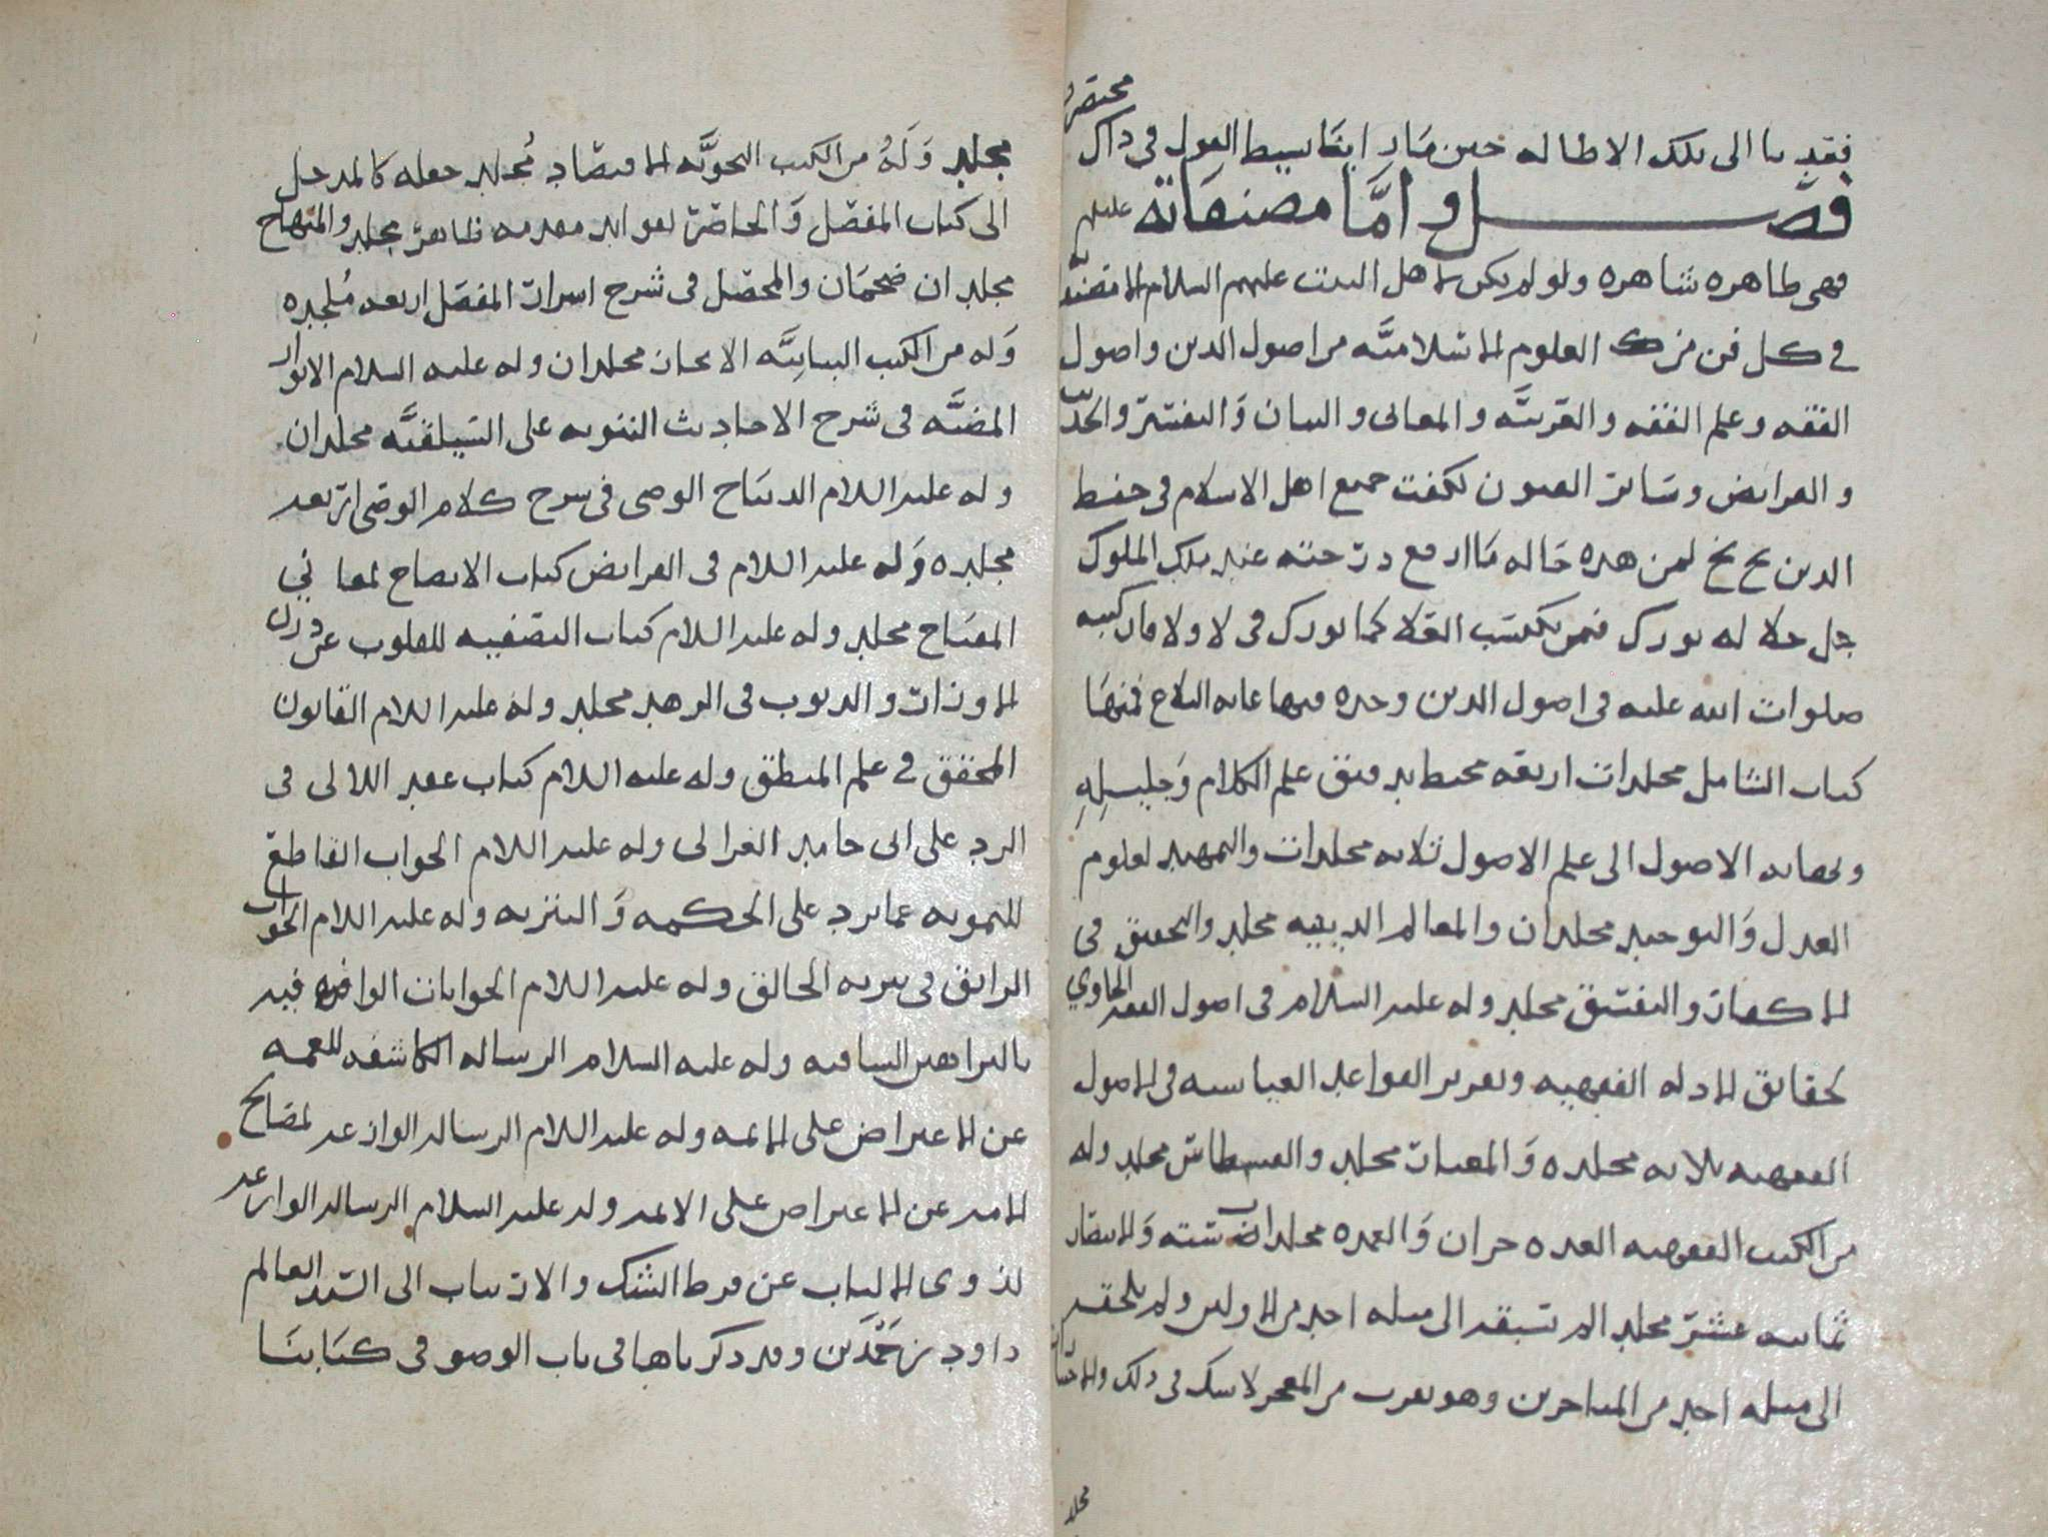 فقد نا الى تلك الاطاله حين صار ايضا بسيط القول في ذاك مختصرا
فصل واما مصنفاته عليلم
فهي ظاهره شاهره ولو لم يكن لاهل البيت عليهم السلام الا تصنيفه
في كل فن من العلوم الاسلاميه من اصول الدين واصول
الفقه وعلم الفقه والعربيه والمعاني والبيان والتفسير والحديث
والفرايض وسائر الفنون لكفت جميع اهل الاسلام في حفظ
الدين بخ بخ لمن هذه حاله ما ارفع درجته عند ملك الملوك
جل جلاله بورك فمن يكتسب العلا كما بورك في لا ولا فان كتبه
صلوات الله عليه في اصول الدين وحده فيها غايه البلاغ فمنها
كتاب الشامل مجلدات اربعه محيط بدقيق علم الكلام وجليله
ونهايه الاصول الى علم الاصول ثلاثه مجلدات والتمهيد لعلوم
العدل والتوحيد مجلدان والمعالم الدينيه مجلد والتحقيق في
الاكفار والتفسيق مجلد وله عليه السلام في اصول الفقه الحاوي
لحقائق الادله الفقهيه وتقرير القواعد القياسيه في الاصول
الفقهيه ثلاثه مجلده والمعيار مجلد والقسطاس مجلد وله
من الكتب الفقهيه العده جزان والعمده مجلدات سته والانتصار
ثمانيه عشر مجلد لم تسبقه الى مثله احد من الاولين ولم يلحقه
الى مثله احد من المتاخرين وهو يقرب من المعجز لا شك في ذلك والاختيارات
مجلد
مجلد وله من الكتب النحويه الاقتصاد مجلد جعله كالمدخل
الى كتاب المفصل والحاصر لفوائد مقدمه ظاهر مجلد والمنهاج
مجلدان ضخمان والمحصل في شرح اسرار المفصل اربعه مجلده
وله من الكتب البيانيه الايجاز مجلدان وله عليه السلام الانوار
المضيه في شرح الاحاديث النبويه على السيلقيه مجلدان
وله عليه السلام الديباج الوضي في شرح كلام الوصي اربعه
مجلده وله عليه السلام في الفرايض كتاب الايضاح لمعاني
المفتاح مجلد وله عليه السلام كتاب التصفيه للقلوب عن درن
الاوزار والذنوب في الزهد مجلد وله عليه السلام القانون
المحقق في علم المنطق وله عليه السلام كتاب عقد اللالي في
الرد على ابي حامد الغزالي وله عليه السلام الجواب القاطع
للتمويه عما يرد على الحكمه والتنزيه وله عليه السلام الجواب
الرائق في تنزيه الخالق وله عليه السلام الجوابات الوافيه فيه
بالبراهين الشافيه وله عليه السلام الرساله الكاشفه للغمه
عن الاعتراض على الائمه وله عليه السلام الرساله الوازعه لصالح
الامه عن الاعتراض على الائمه وله عليه السلام الرساله الوازعه
لذوي الالباب عن فرط الشك والارتياب الى السيد العالم
داود بن حمدين وقد ذكرناها في باب الوضو في كتابنا